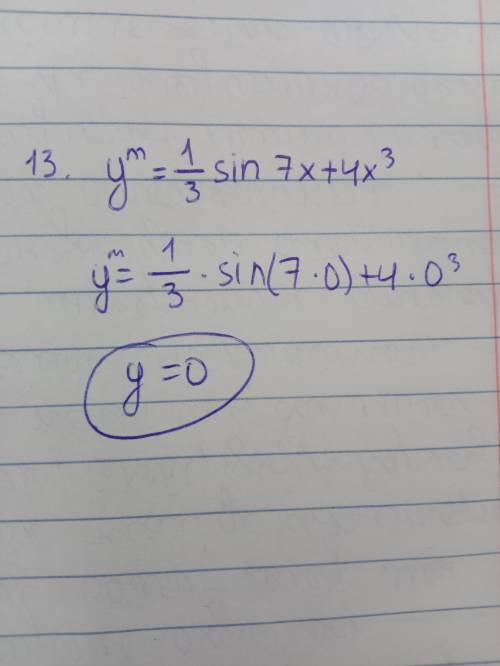 13. yᵐ = 1/3 sin 7x + 4x³
yᵐ = 1/3 · sin(7·0) + 4·0³
y = 0